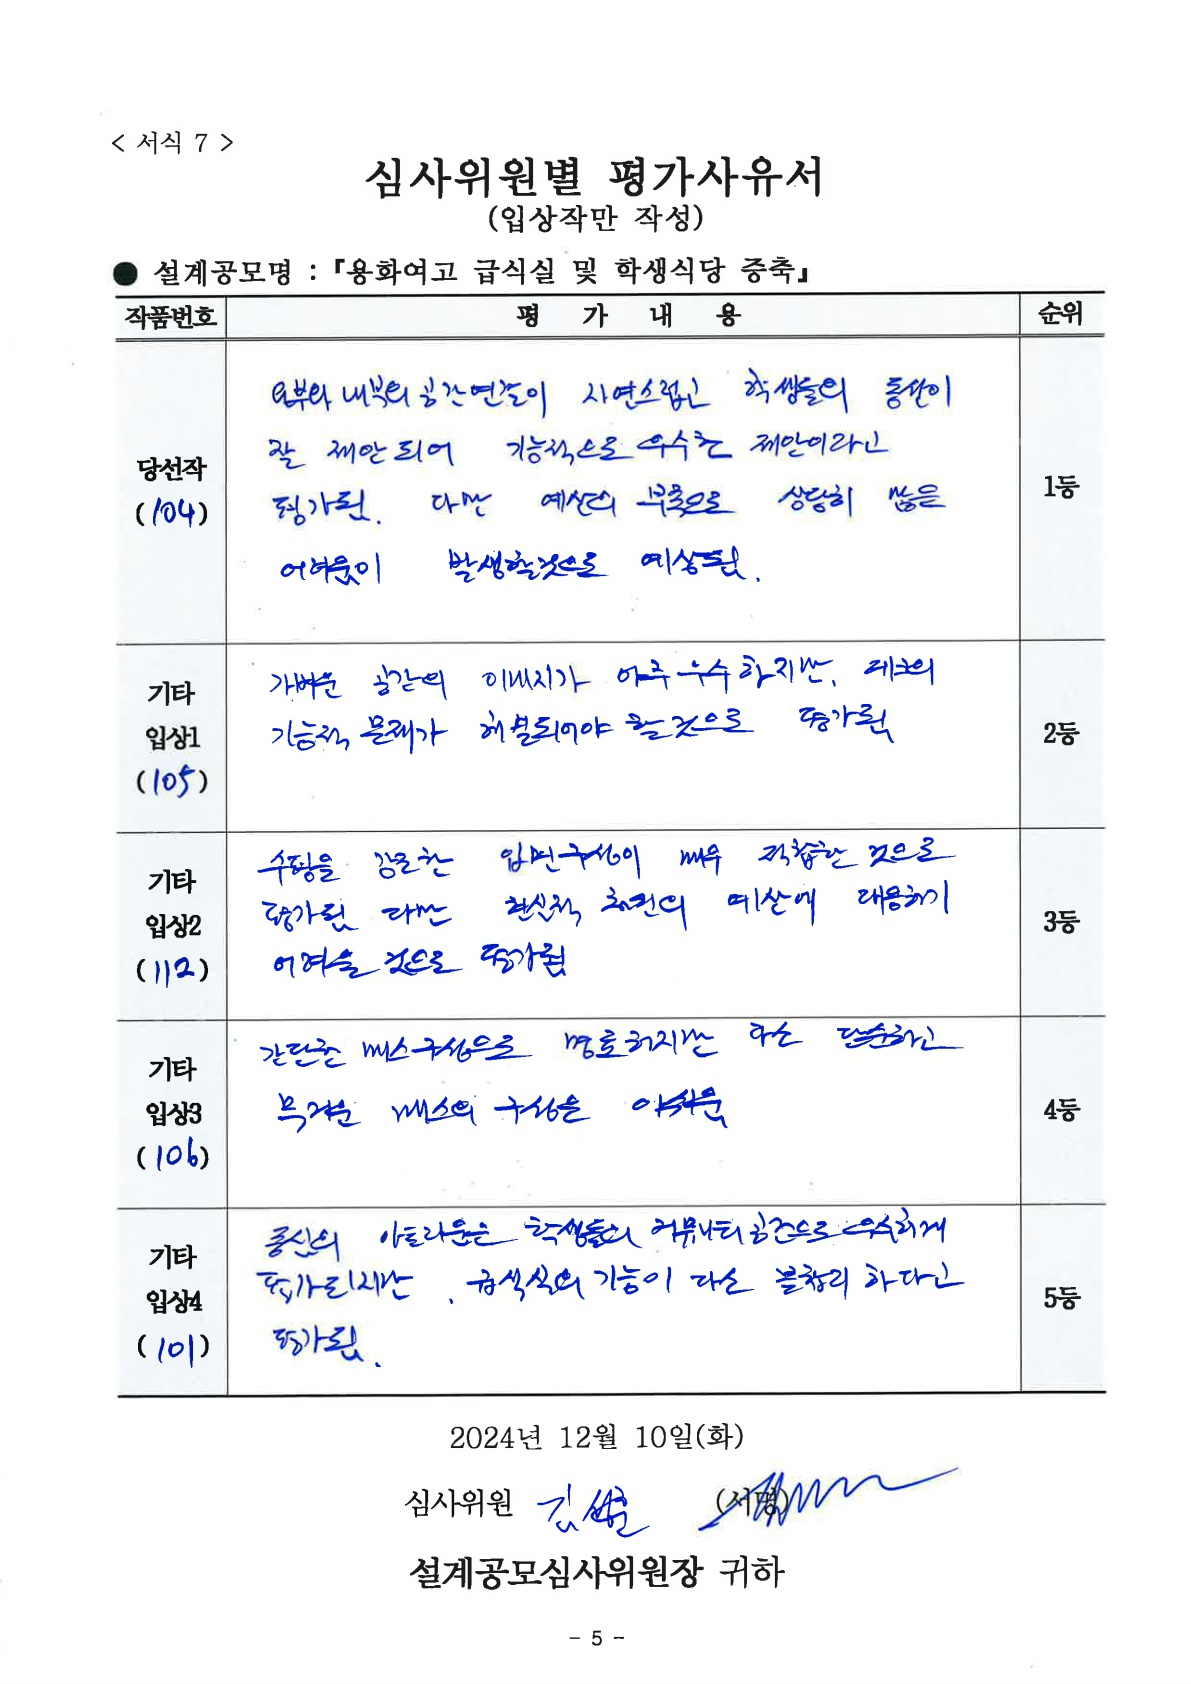 < 서식 7 >
심사위원별 평가사유서
(입상작만 작성)
● 설계공모명 : 『용화여고 급식실 및 학생식당 증축』
작품번호 평 가 내 용 순위
당선작
(104)
외부와 내부의 공간연결이 자연스럽고 학생들의 동선이
잘 제안되어 기능적으로 우수한 제안이라고
평가됨. 다만 예산의 부족으로 상당히 많은
어려움이 발생할것으로 예상됨.
1등
기타
입상1
(105)
가벼운 공간의 이미지가 아주 우수하지만, 데크의
기능적 문제가 해결되어야 할 것으로 평가됨
2등
기타
입상2
(112)
수평을 강조한 입면구성이 매우 적합한 것으로
평가됨 다만 현실적 예산에 대응하기
어려울 것으로 평가됨
3등
기타
입상3
(106)
간단한 매스구성으로 명료하지만 다소 단순하고
무거운 매스의 구성은 아쉬움
4등
기타
입상4
(101)
중심의 학생들의 커뮤니티 공간으로 우수하게
평가되지만, 급식실의 기능이 다소 불합리 하다고
평가됨.
5등
2024년 12월 10일(화)
심사위원 김 (서명)
설계공모심사위원장 귀하
- 5 -